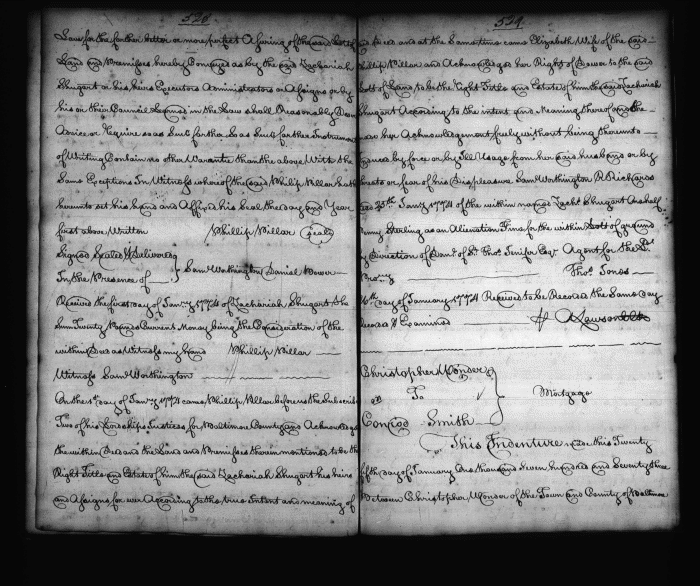 528
Law for the further better or more perfect Assuring of the said Lott of
Land and Premisses hereby Conveyed as by the said Zachariah
Shugart or his heirs Executors Administrators or Assigns or by
his or their Council Learned in the Law shall Reasonably
Advice or Require so as such further
of Writing Contain no other Warrantie than the above With the
Same Exceptions In Witness whereof the said Philip Villar hath
hereunto set his hand and Affixed his Seal the day and Year
first above Written Phillip Villar Seal
Signed Sealed & Delivered
In the Presence of Sam Worthington Daniel Bower
Received the first day of Janry 1774 of Zachariah Shugart the
Sum Twenty Pounds Current Money being the Consideration of the
within Deed as Witness my hand Phillip Villar
Witness Saml Worthington
On the day of Janry 1774 came Phillip Villar before us the Subscribers
Two of his Lordships Justices for Baltimore County and Acknowledged
the within Deed and the Land and Premisses therein mentioned to be the
Right Title and Estate of him the said Zachariah Shugart his heirs
and Assigns for ever According to the true Intent and meaning of
529
and at the Same time came Elizabeth Wife of the said
Phillip Villar and Acknowledged her Right of Dower to the said
Lott of Land to be the Right Title and Estate of him the said Zachariah
Shugart According to the intent and Meaning thereof and the
her Acknowledgement freely without being thereunto
by force or by Ill Usage from her said husband or by
threats or fear of his Displeasure Sam Worthington R Richards
Janry 1774 of the within named Zachr Shugart
Penny Sterling as an Alienation Fine for the within Lott of ground
by Direction of Danl of St Thos Jenifer Esqr Agent for the Ld
Thos Jones
day of January 1774 Received to be Recorded the Same day
Recorded & Examined A Lawson Clk
Christopher Wonder
To Mortgage
Conrod Smith
This Indenture made this Twenty
fifth day of January One thousand Seven hundred and Seventy three
Between Christopher Wonder of the Town and County of Baltimore